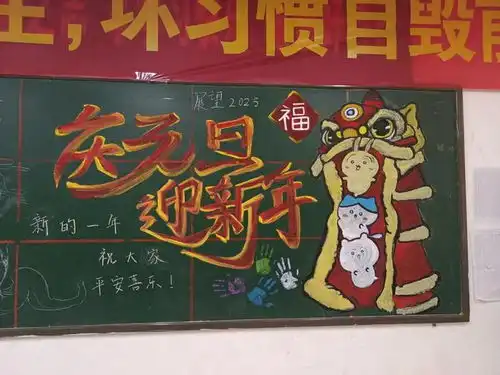 ，坏习惯自毁前
展望2023
福
庆元旦
迎新年
新的一年
祝大家
平安喜乐！